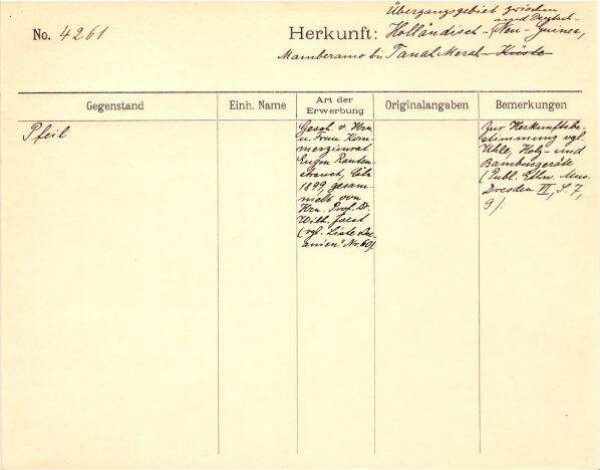 Übergangsgebiet zwischen
und Deutsch-
No. 4261 Herkunft: Holländisch-Neu-Guinea,
Mamberamo bis Tanah Merah-Küste
Gegenstand Einh. Name Art der Erwerbung Originalangaben Bemerkungen
Pfeil
Gesch. v. Hrn.
u. Frau Kom-
merzienrat
Eugen Rauten-
strauch, Cöln
1899, gesam-
melt von
Hrn. Prof. Dr.
Wilh. Joest
(vgl. Liste Oze-
anien Nr. 60)
Zur Herkunftsbe-
stimmung vgl.
Uhle, Holz- und
Bambusgeräte
(Publ. Ethn. Mus.
Dresden VI, S. 7,
9).